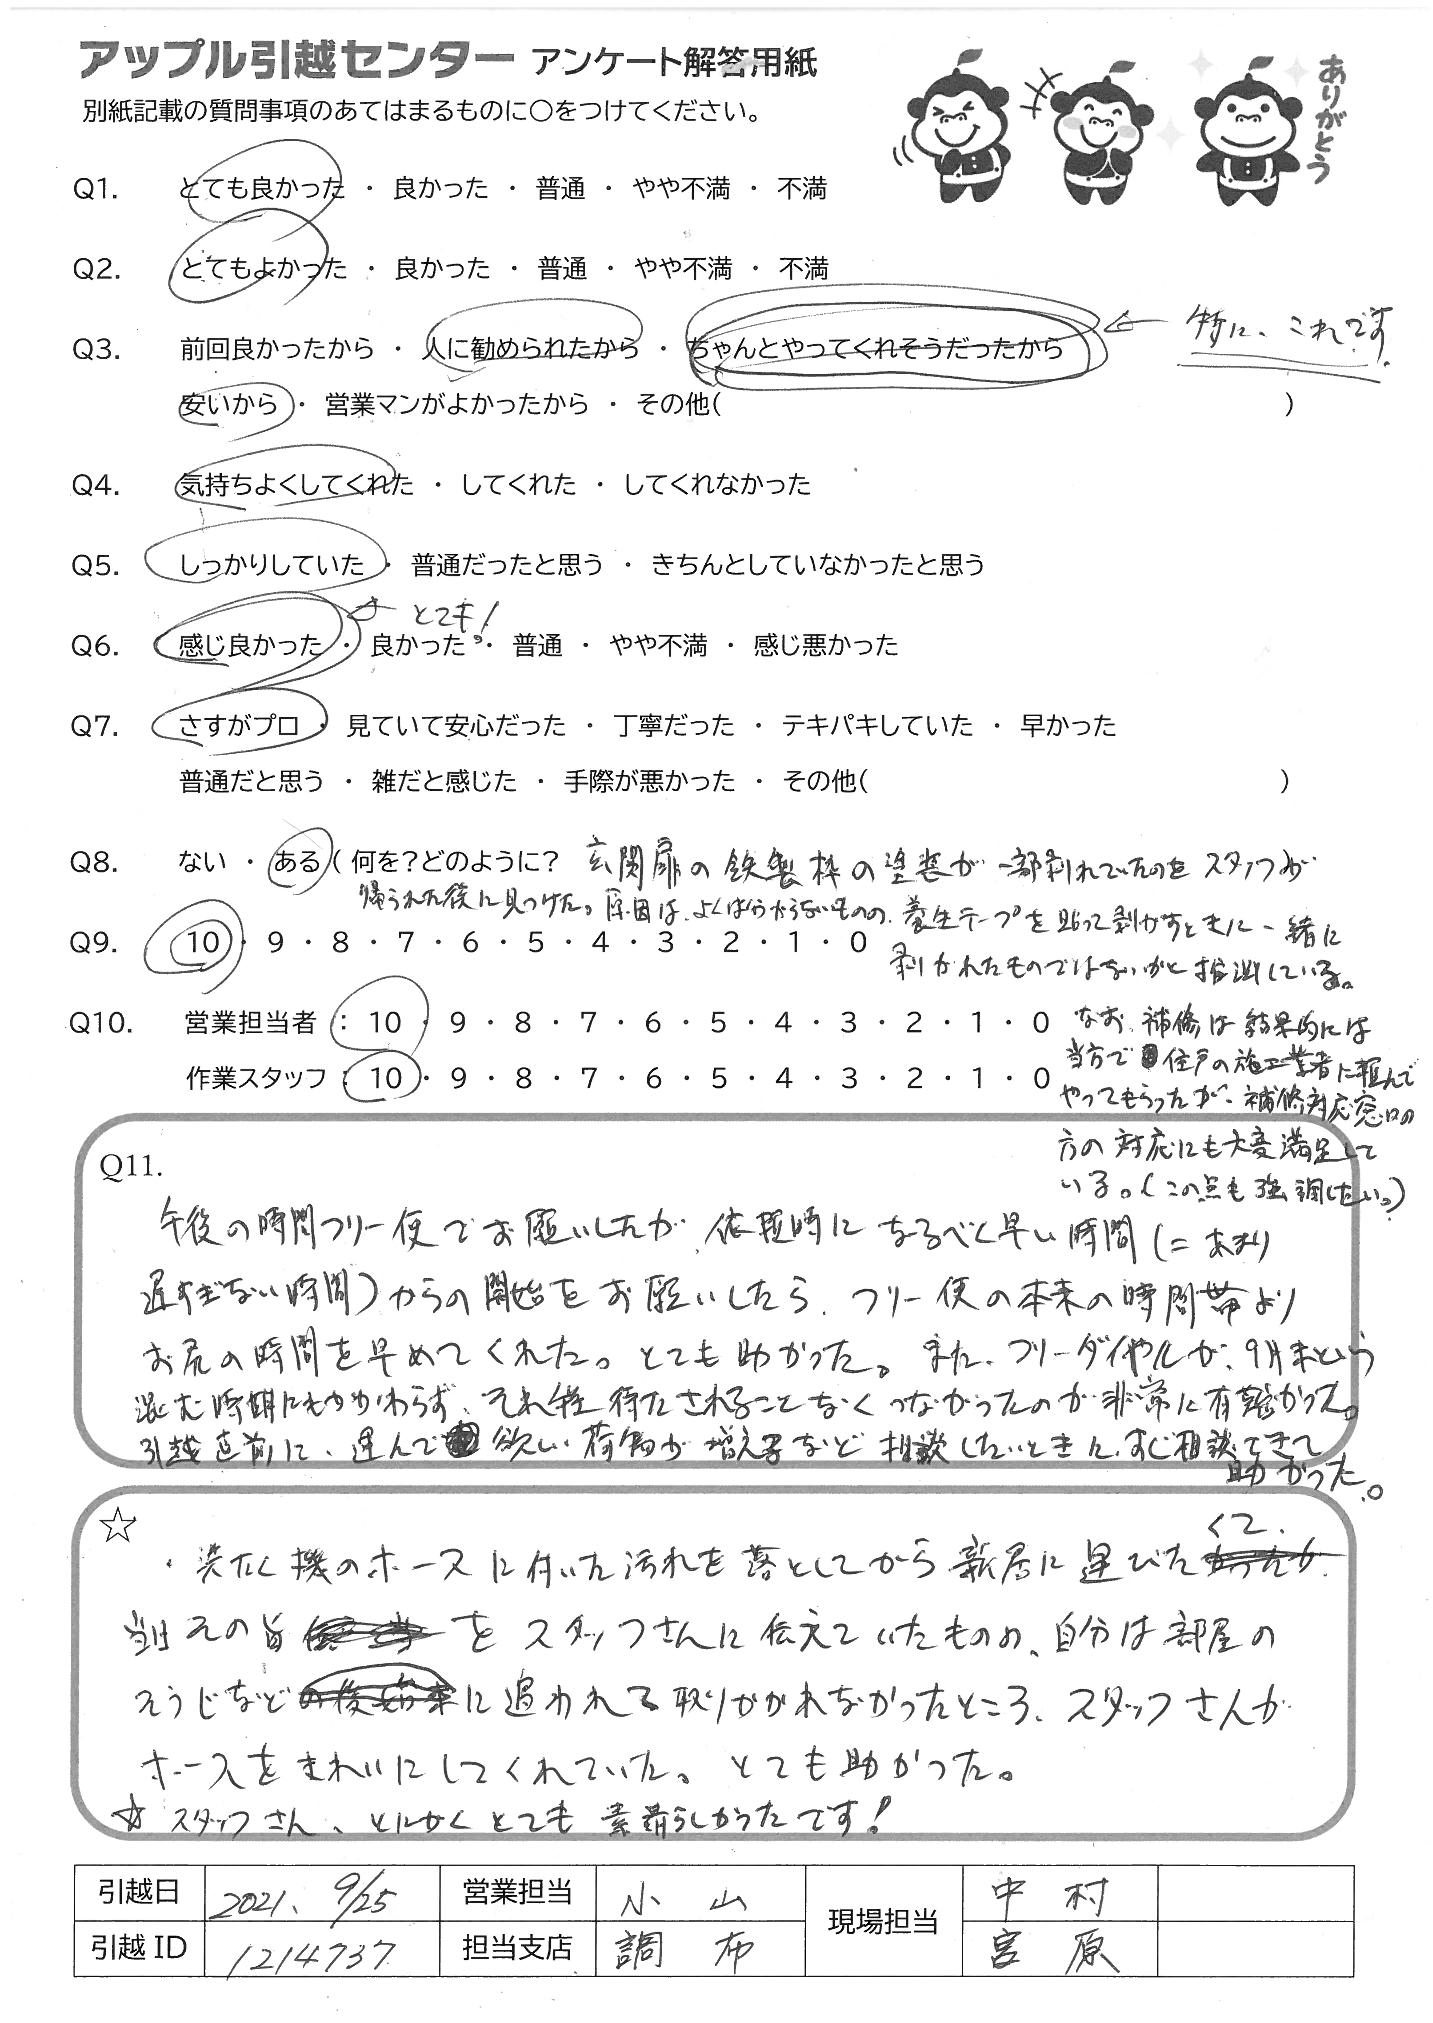 アップル引越センター アンケート解答用紙
ありがとう
別紙記載の質問事項のあてはまるものに〇をつけてください。
Q1. とても良かった ・ 良かった ・ 普通 ・ やや不満 ・ 不満
Q2. とてもよかった ・ 良かった ・ 普通 ・ やや不満 ・ 不満
Q3. 前回良かったから ・ 人に勧められたから ・ ちゃんとやってくれそうだったから ← 特に、これです
安いから ・ 営業マンがよかったから ・ その他( )
Q4. 気持ちよくしてくれた ・ してくれた ・ してくれなかった
Q5. しっかりしていた ・ 普通だったと思う ・ きちんとしていなかったと思う
← とても!
Q6. 感じ良かった ・ 良かった ・ 普通 ・ やや不満 ・ 感じ悪かった
Q7. さすがプロ ・ 見ていて安心だった ・ 丁寧だった ・ テキパキしていた ・ 早かった
普通だと思う ・ 雑だと感じた ・ 手際が悪かった ・ その他( )
Q8. ない ・ ある ( 何を?どのように? 玄関扉の鉄製枠の塗装が一部剥れていたのをスタッフが
帰られた後に見つけた。原因は、よくは分からないものの、養生テープを貼って剥がすときに一緒に
剥がれたものではないかと推測している。
Q9. 10 ・ 9 ・ 8 ・ 7 ・ 6 ・ 5 ・ 4 ・ 3 ・ 2 ・ 1 ・ 0
Q10. 営業担当者 : 10 ・ 9 ・ 8 ・ 7 ・ 6 ・ 5 ・ 4 ・ 3 ・ 2 ・ 1 ・ 0
作業スタッフ : 10 ・ 9 ・ 8 ・ 7 ・ 6 ・ 5 ・ 4 ・ 3 ・ 2 ・ 1 ・ 0
なお、補修は結果的には
当方で住戸の施工業者に頼んで
やってもらったが、補修対応窓口の
方の対応にも大変満足して
いる。(この点も強調したい。)
Q11.
午後の時間フリー便でお願いしたが、依頼時になるべく早い時間(=あまり
遅すぎない時間)からの開始をお願いしたら、フリー便の本来の時間帯より
お尻の時間を早めてくれた。とても助かった。また、フリーダイヤルが、9月末という
混む時期にもかかわらず、それ程待たされることなくつながったのが非常に有難かった。
引越直前に、運んで欲しい荷物が増えるなど相談したいときに、すぐ相談できて
助かった。
☆
・洗たく機のホースに付いた汚れを落としてから新居に運びたくて、
当日その旨をスタッフさんに伝えていたものの、自分は部屋の
そうじなどに追われて取りかかれなかったところ、スタッフさんが
ホースをきれいにしてくれていた。とても助かった。
☆ スタッフさん、とにかくとても素晴らしかったです!
引越日 2021. 9/25 営業担当 小山 現場担当 中村
引越ID 1214737 担当支店 調布 宮原